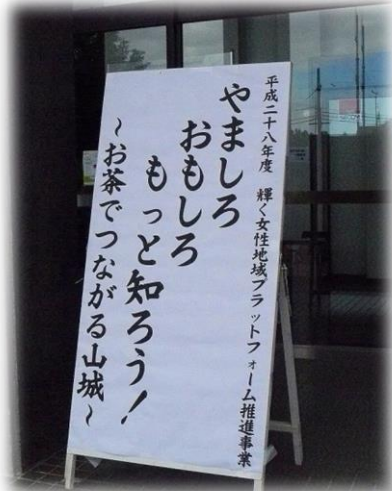 平成二十八年度 輝く女性地域プラットフォーム推進事業
やましろ
おもしろ
もっと知ろう!
~お茶でつながる山城~